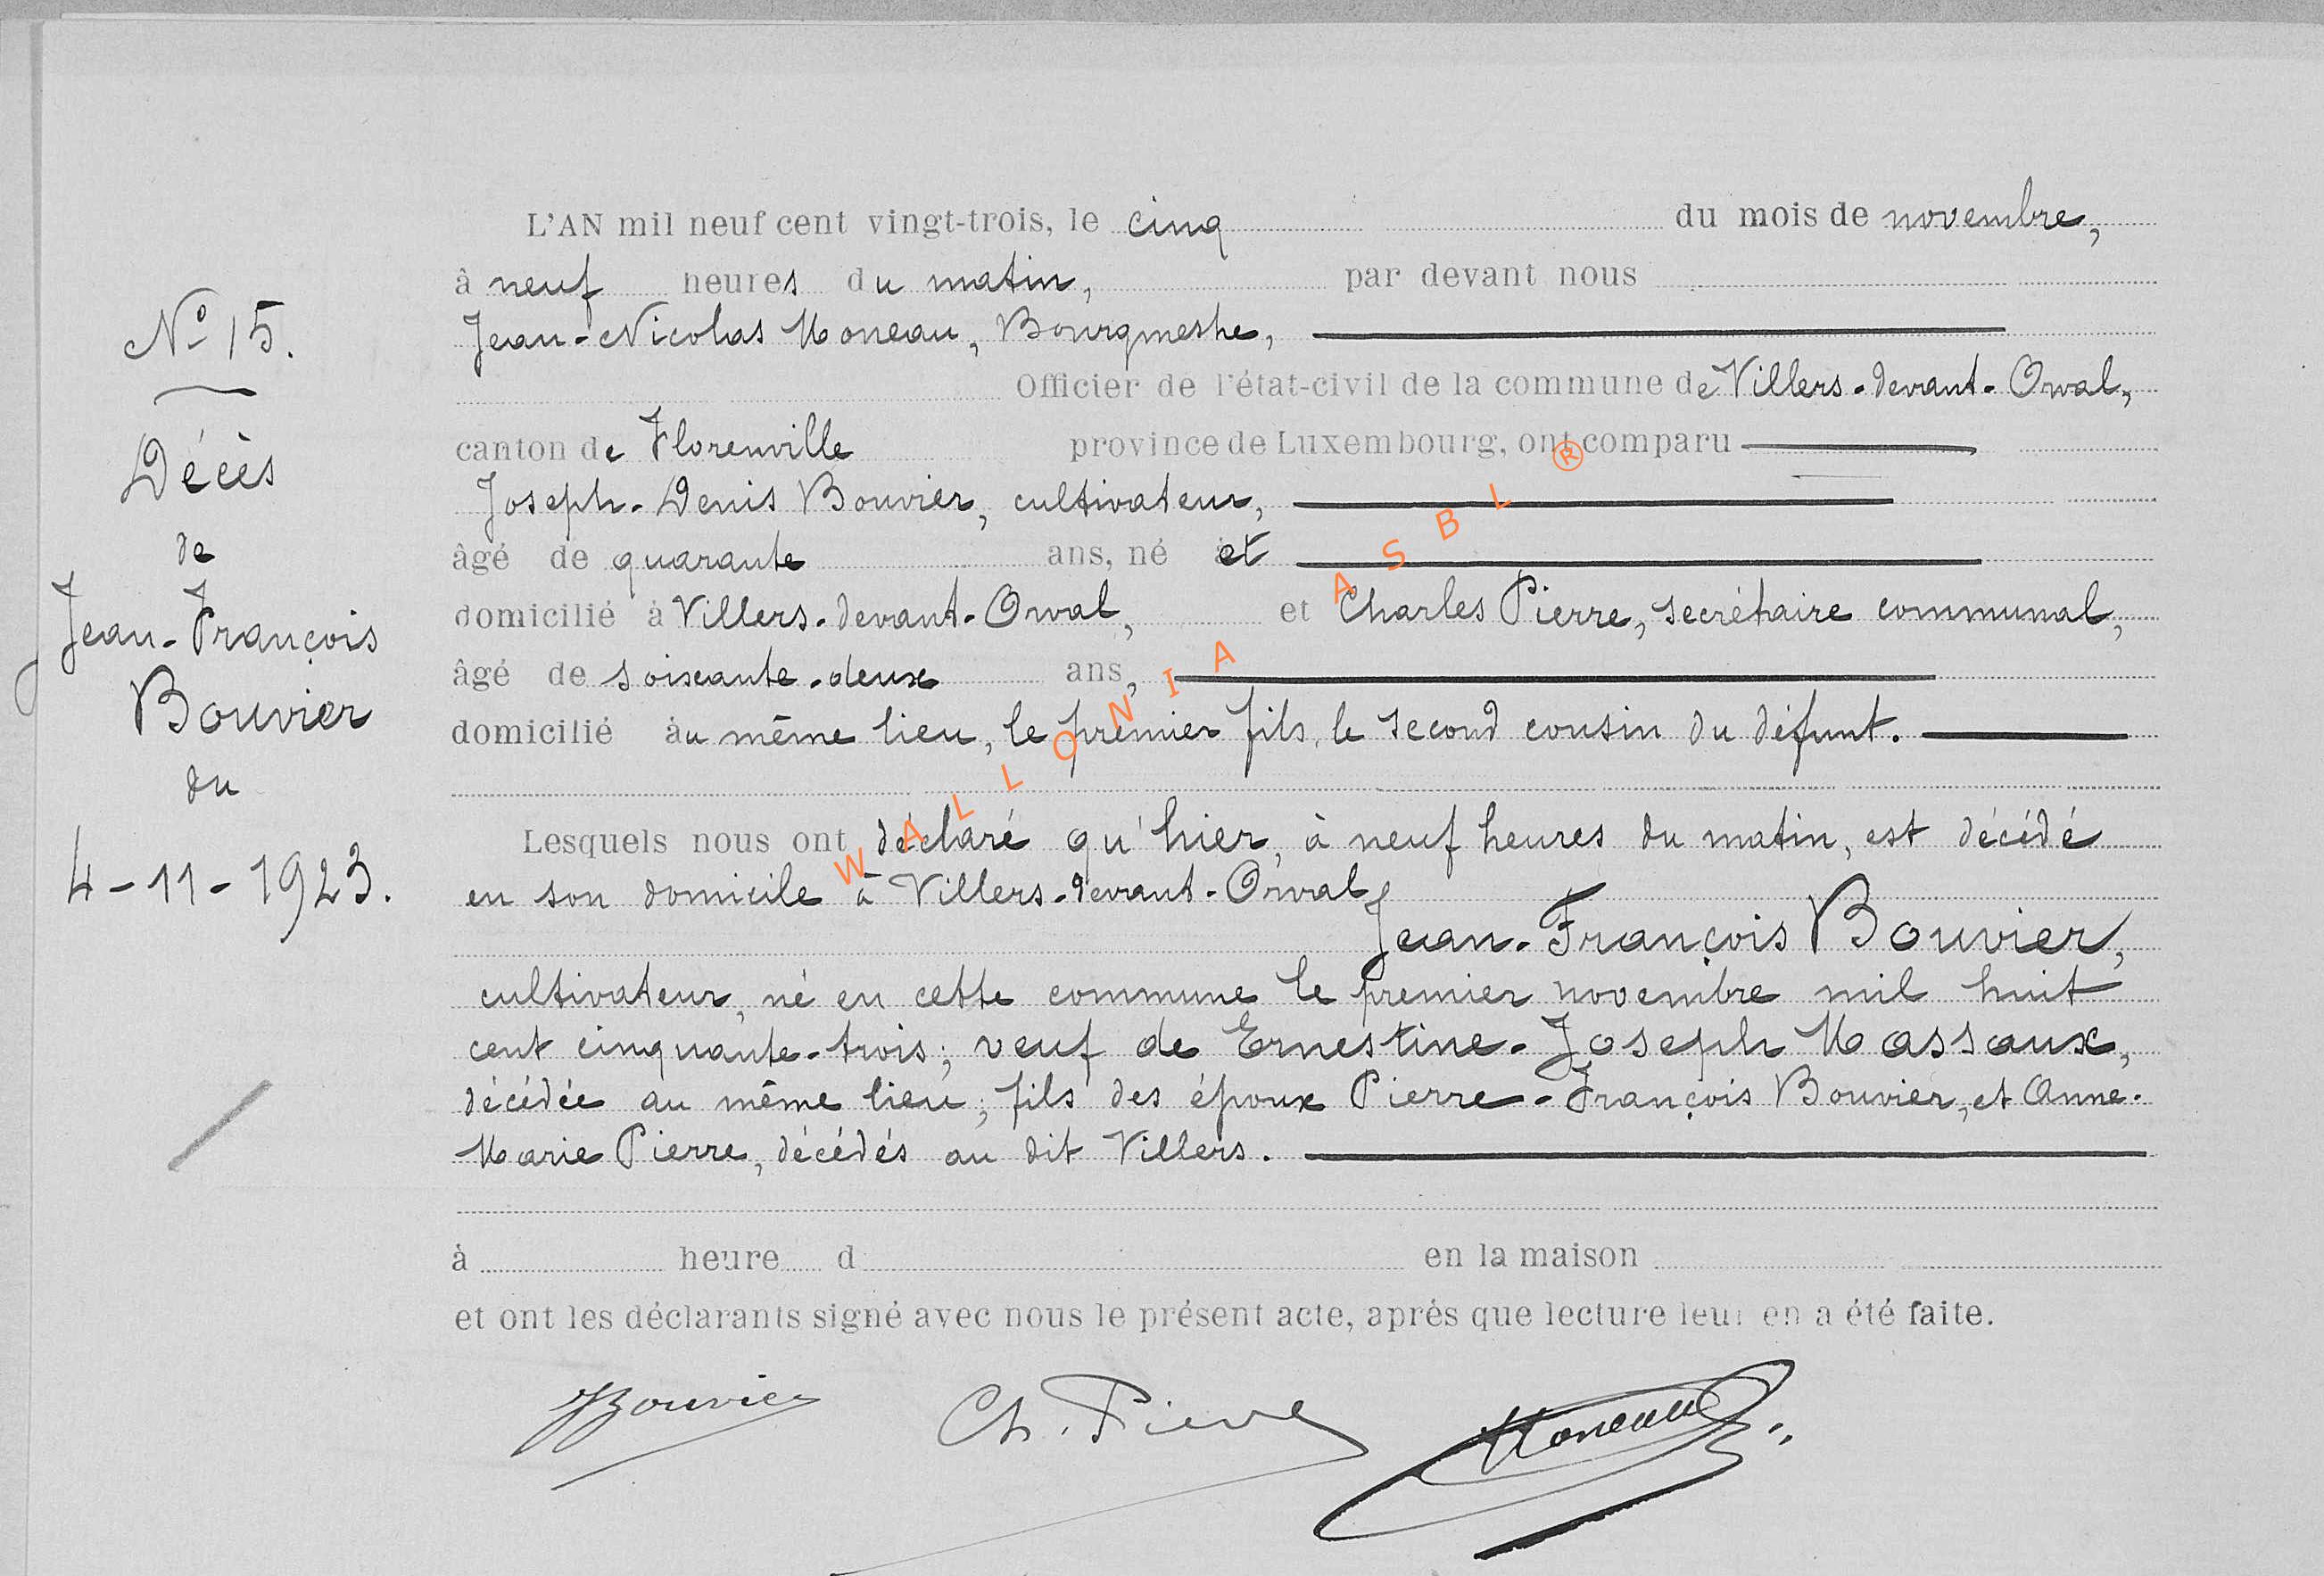 L'AN mil neuf cent vingt-trois, le cinq du mois de novembre,
à neuf heures du matin, par devant nous
Jean-Nicolas Moneau, Bourgmestre,
Officier de l'état-civil de la commune de Villers-devant-Orval,
canton de Florenville province de Luxembourg, ont comparu
Joseph-Denis Bouvier, cultivateur,
âgé de quarante ans, né et
domicilié à Villers-devant-Orval, et Charles Pierre, secrétaire communal,
âgé de soixante-deux ans,
domicilié au même lieu, le premier fils, le second cousin du défunt.
Lesquels nous ont déclaré qu'hier, à neuf heures du matin, est décédé
en son domicile à Villers-devant-Orval
Jean-François Bouvier,
cultivateur, né en cette commune le premier novembre mil huit
cent cinquante-trois; veuf de Ernestine-Joseph Massaux,
décédée au même lieu; fils des époux Pierre-François Bouvier, et Anne-
Marie Pierre, décédés au dit Villers.
à heure d en la maison
et ont les déclarants signé avec nous le présent acte, après que lecture leur en a été faite.
JBouvier Ch. Pierre Moneau
N° 15.
Décès
de
Jean-François
Bouvier
du
4-11-1923.
WALLONIA ASBL ®